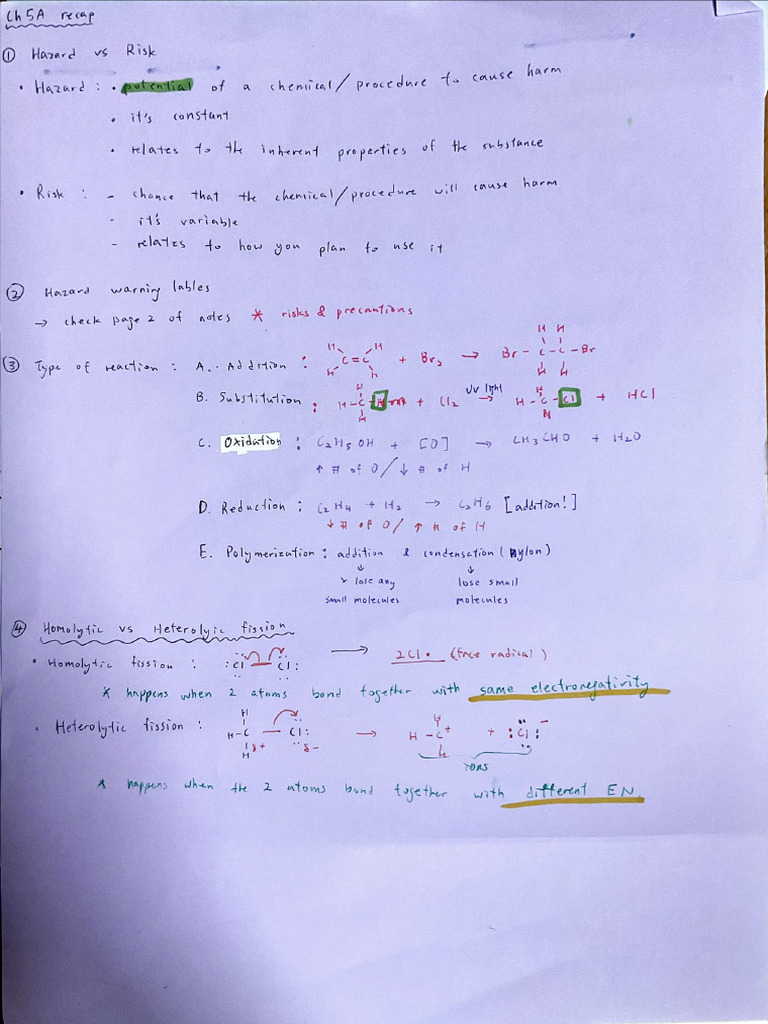 Ch 5A recap
① Hazard vs Risk
• Hazard : • potential of a chemical/procedure to cause harm
• it's constant
• relates to the inherent properties of the substance
• Risk : - chance that the chemical/procedure will cause harm
- it's variable
- relates to how you plan to use it
② Hazard warning lables
→ check page 2 of notes * risks & precautions
③ Type of reaction : A. Addition :
H H
C=C + Br₂ → Br - C - C - Br
H H H H
H H
B. Substitution :
H
H - C - H + Cl₂ UV light → H - C - Cl + HCl
H H
H
C. Oxidation : C₂H₅OH + [O] → CH₃CHO + H₂O
↑ # of O / ↓ # of H
D. Reduction : C₂H₄ + H₂ → C₂H₆ [addition!]
↓ # of O / ↑ # of H
E. Polymerization : addition & condensation (nylon)
↓ ↓
x lose any lose small
small molecules molecules
④ Homolytic vs Heterolyic fission
• Homolytic fission : :Cl — Cl: → 2Cl• (free radical)
* happens when 2 atoms bond together with same electronegativity
• Heterolytic fission :
H H
H-C — Cl: → H - C⁺ + :Cl:⁻
H δ+ δ- H
ions
* happens when the 2 atoms bond together with different EN